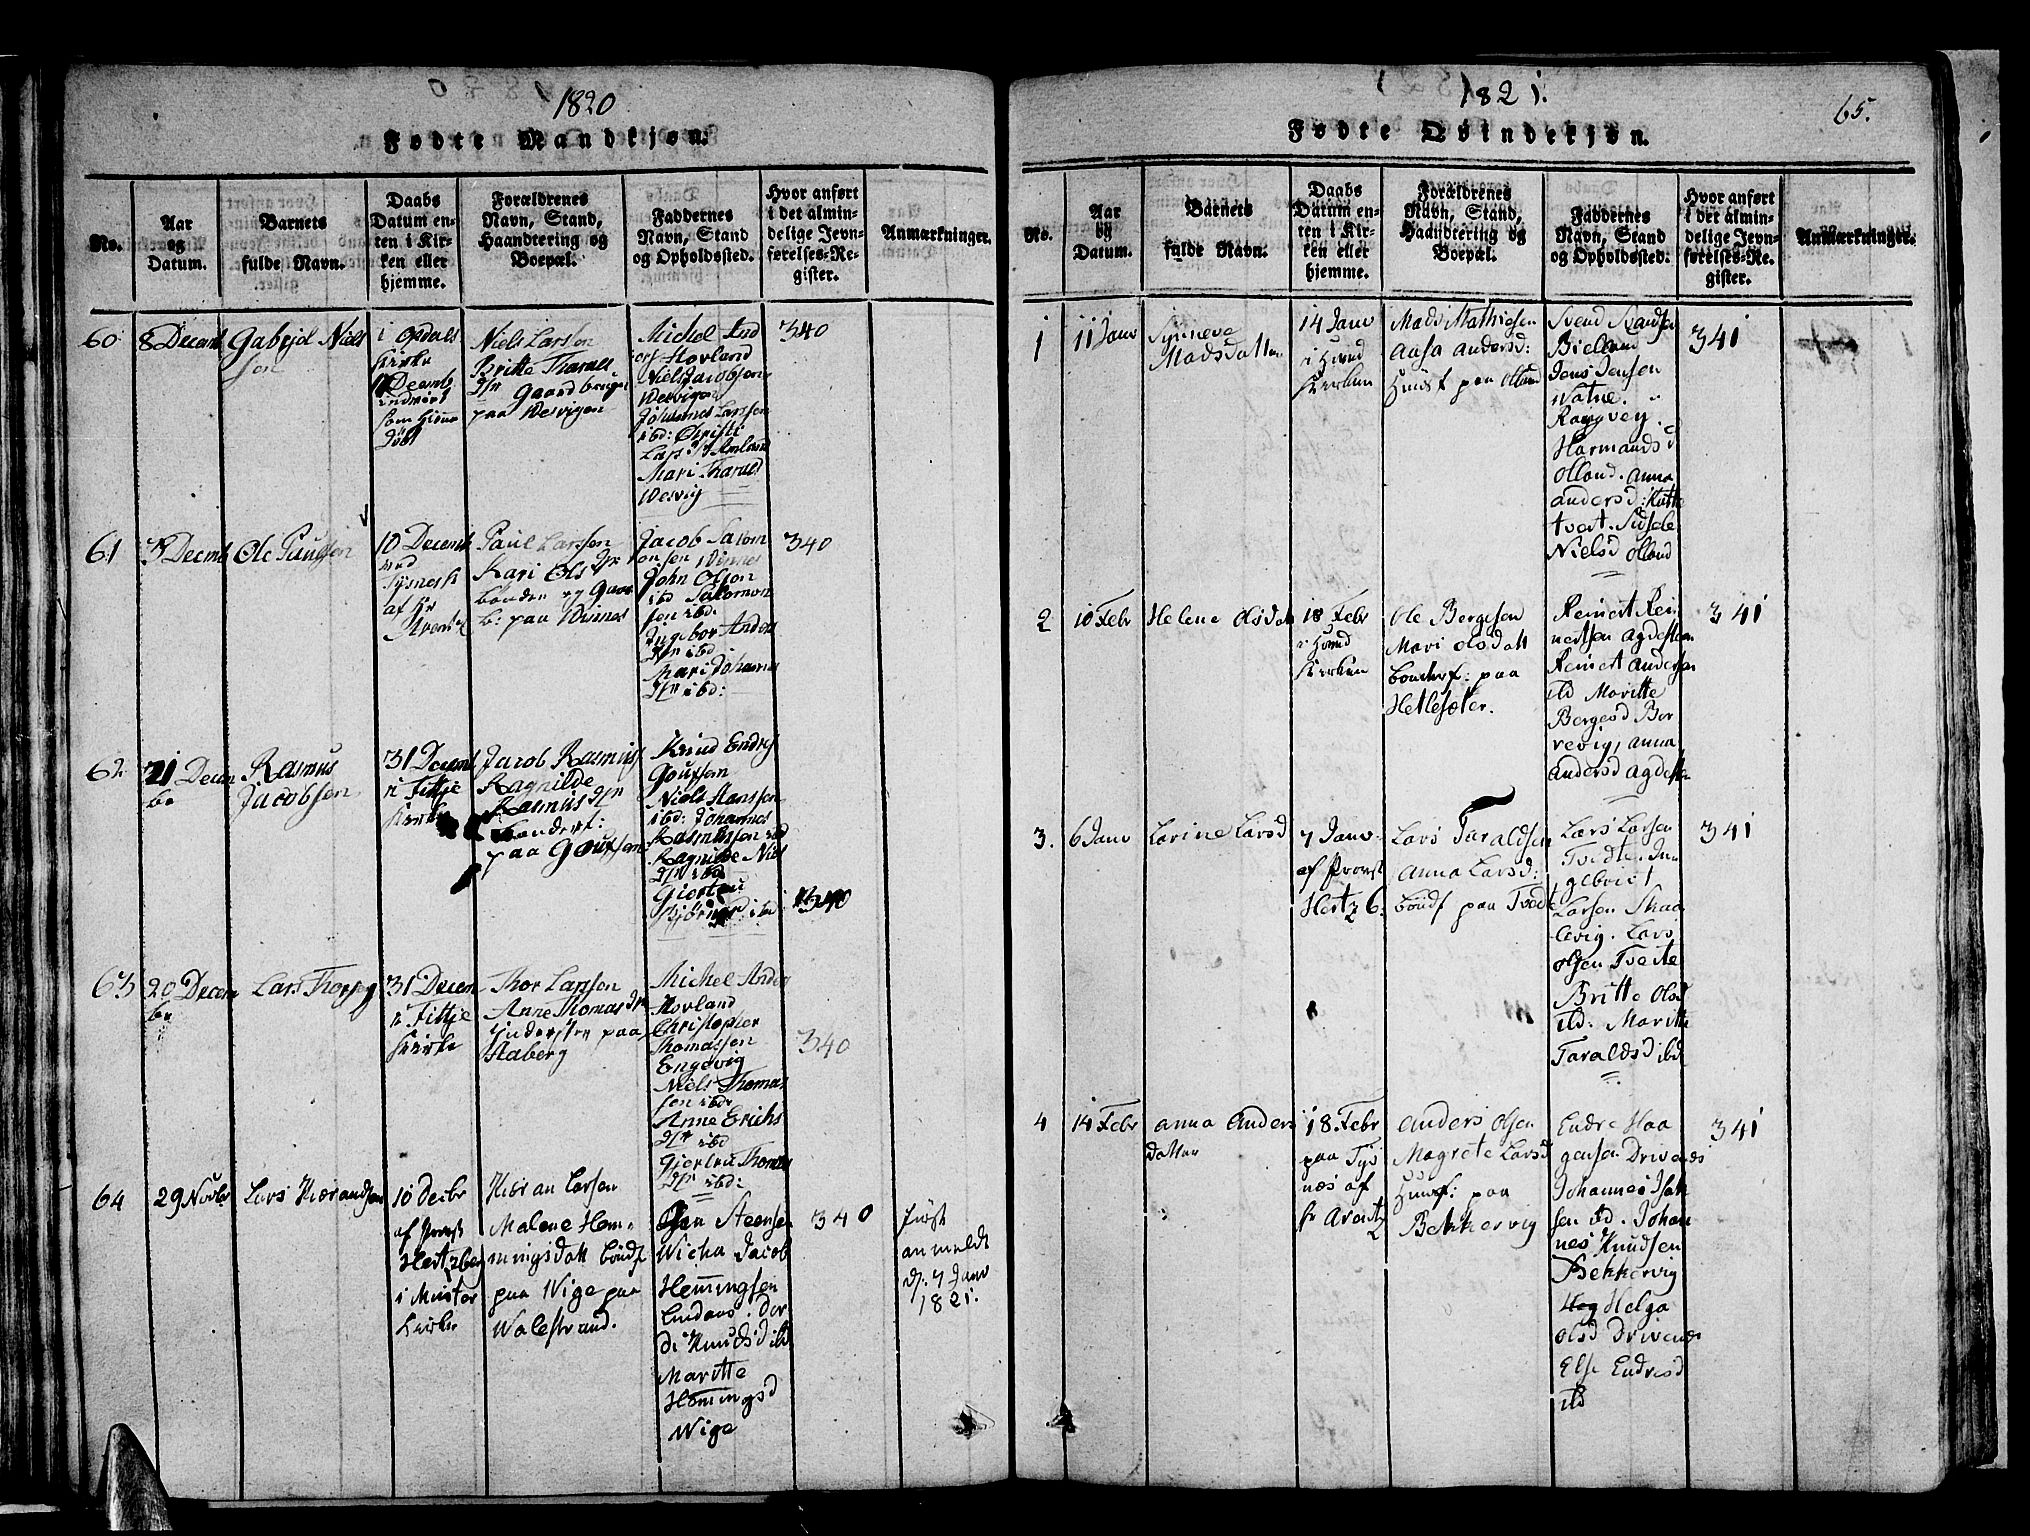 1820
Fødte Mandkjøn.
No.
Aar
og
Datum.
Barnets
fulde Navn.
Daabs
Datum en-
ten i Kir-
ken eller
hjemme.
Forældrenes
Navn, Stand,
Haandtering og
Boepæl.
Faddernes
Navn, Stand
og Opholdssted.
Hvor anført
i det almin-
delige Jevn-
førelses-Re-
gister.
Anmærkninger.
60
8 Decemb
Gabriel Niels
sen
i Opdals
Kirke
Decemb
som hjemme
døbt
Niels Larsen
Britte Thames
Dtr Gaardbruger
paa Wesvigen
Michel And
Hovland
Niels Jacobsen
Wesvigen
Johannes Larssen
ibd: Christi
Lars Dtr Amland
Mari Thames
Wesvig
340
61
Decmb
Ole Paulsen
10 Decemb
ved
Tysnes K
af Hr
Arentz
Paul Larssen
Kari Ols Dtr
bonde og Gaard
b: paa Winnes
Jacob Salom
onsen Winnes
John Olson
ibd Salomon
sen ibd:
Ingebor Anders
Dtr ibd
Mari Johannes
Dtr ibd:
340
62
21 Decem
br
Rasmus
Jacobsen
31 Decemb
i Fittje
Kirke
Jacob Rasmus
Ragnilde
Rasmus Dtr
bonderf:
paa Goutsen
Knud Endres
Goutsen
Niels Hanssen
ibd: Johannes
Rasmussen ibd
Ragnilde Niels
Dtr ibd
Giertru
ibd
340
63
20 Decem
br
Lars Thorsen
31 Decem
i Fittje
Kirke
Thor Larssen
Anne Thomas Dtr
Inderster paa
Aaberg
Michel Anders
Hovland
Christopher
Thomassen
Engevig
Niels Thomas
sen ibd:
Anne Erichs
Dtr ibd
Gjertru Thomas
Dtr ibd:
340
64
29 Novbr
Lars Hærandsen
10 Decbr
af Provst
Hertzberg
i Muster
Kirke
Hæran Larsen
Malene Hem-
mingsdatt böndf
paa Wige paa
Walestrand.
Steensen
Wicha Jacob
Hemmingsen
Lindaas. Dor
di Knudsd ibd
Maritte
Hemmingsd
Wige
340
først
anmeldt
d: 7 Janv
1821.
1821.
65.
Fødte Qvindekjøn.
No.
Aar
og
Datum.
Barnets
fulde Navn.
Daabs
Datum en-
ten i Kir-
ken eller
hjemme.
Forældrenes
Navn, Stand,
Haandtering og
Boepæl.
Faddernes
Navn, Stand
og Opholdssted.
Hvor anført
i det almin-
delige Jevn-
førelses-Re-
gister.
Anmærkninger.
1
11 Janv
Synneve
Madsdatter
14 Janv
i Hoved
Kirken
Mads Mathiesen
Aasa Andersd:
Huusf paa Olland
Svend Svends
Bielland
Jens Jensen
Watne.
Rangvey
Harmandsd
Olland. Anna
Andersd: Katte
tvet. Sidsele
Nielsd Olland
341
2
10 Febr
Helene Olsdatt
18 Febr
i Hoved
Kirken
Ole Bergesen
Mari Olsdatt
bönderf: paa
Hetlesæter.
Reinert Rein
nertsen Agdesteen
Reinert Andersen
ibd Maritte
Bergesd Bor
revig, Anna
Andersd Agdesteen
341
3.
6 Janv
Larine Larsd
7 Janv
af Provst
Hertzb:
Lars Taraldsen
Anna Larsd:
böndf paa Tvedte
Lars Larsen
Tvedte. In
gebrict
Larsen Skaa
levig. Lars
Olsen Tveite
Britte Olsd
ibd: Maritte
Taraldsd ibd
341
4
14 Febr
Anna Anders
datter
18. Febr
paa Tys
næs af
hr Arentz
Anders Olsen
Magrete Larsd
Huusf: paa
Bekkervig
Endre Haa
gensen Drivenæs
Johannes Isak
sen ibd. Johan
nes Knudsen
Bekkervig
Helga
Olsd Drivenæs
Else Endresd
ibd
341